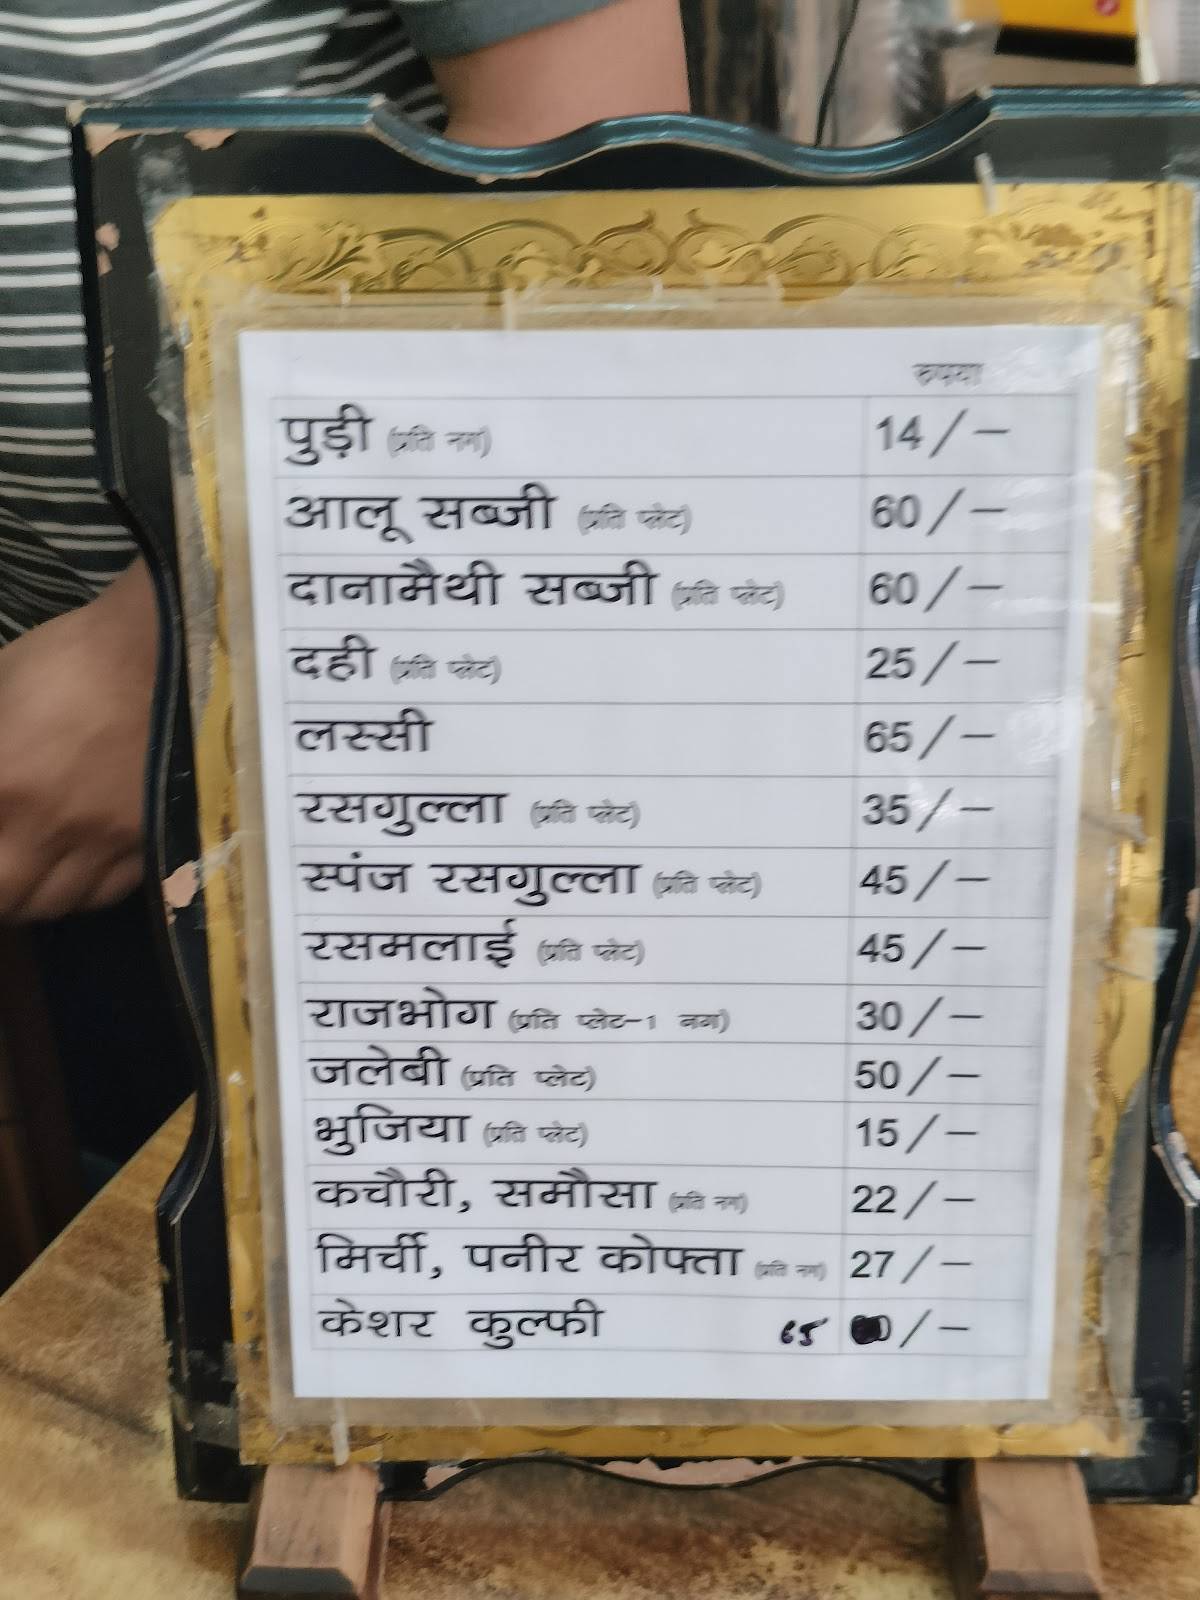 रुपया
पुड़ी (प्रति नग) 14/-
आलू सब्जी (प्रति प्लेट) 60/-
दानामैथी सब्जी (प्रति प्लेट) 60/-
दही (प्रति प्लेट) 25/-
लस्सी 65/-
रसगुल्ला (प्रति प्लेट) 35/-
स्पंज रसगुल्ला (प्रति प्लेट) 45/-
रसमलाई (प्रति प्लेट) 45/-
राजभोग (प्रति प्लेट-1 नग) 30/-
जलेबी (प्रति प्लेट) 50/-
भुजिया (प्रति प्लेट) 15/-
कचौरी, समौसा (प्रति नग) 22/-
मिर्ची, पनीर कोफ्ता (प्रति नग) 27/-
केशर कुल्फी 65 /-